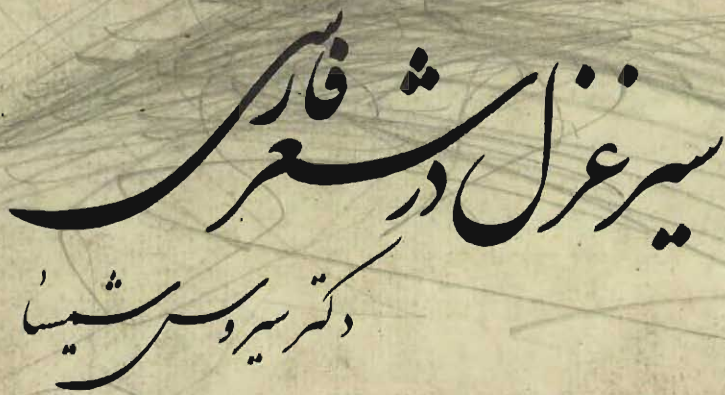 سیر غزل در شعر فارسی
دکتر سیروس شمیسا